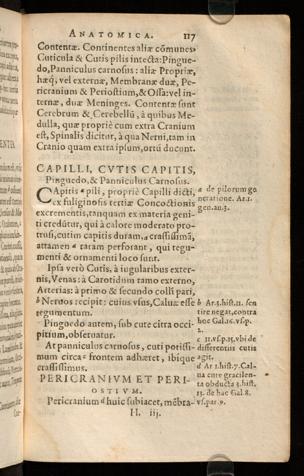 ANATOMICA. 117
Contentæ. Continentes aliæ cõmunes,
Cuticula & Cutis pilis intecta: Pingue-
do, Panniculus carnosus: aliæ Propriæ,
hæq; vel externæ, Membranæ duæ, Pe-
ricranium & Periostium, & Ossa: vel in-
ternæ, duæ Meninges. Contentæ sunt
Cerebrum & Cerebellũ, à quibus Me-
dulla, quæ propriè cum extra Cranium
est, Spinalis dicitur, à qua Nerui, tam in
Cranio quam extra ipsum, ortũ ducunt.
CAPILLI, CVTIS CAPITIS,
Pinguedo, & Panniculus Carnosus.
Capitis a pili, propriè Capilli dicti,
ex fuliginosis tertiæ Concoctionis
excrementis, tanquam ex materia geni-
ti creduntur, qui à calore moderato pro-
trusi, cutim capitis duram, crassissimã,
attamen raram perforant, qui tegu-
menti & ornamenti loco sunt.
Ipsa verò Cutis, à iugularibus exter-
nis, Venas: à Carotidum ramo externo,
Arterias: à primo & secundo colli pari,
b Neruos recipit: cuius vsus, Caluæ esse
tegumentum.
Pinguedo autem, sub cute circa occi-
pitium, obseruatur.
At panniculus carnosus, cuti potissi-
mum circa c frontem adhæret, ibique
crassissimus.
PERICRANIVM ET PERI-
OSTIVM.
Pericranium d huic subiacet, mẽbra-
H. iij.
a de pilorum ge
neratione. Ar.2.
gen.an.3.
b Ar.3.hist.11. sen
tire negat, contra
hoc Gal.16.vsp.
2.
c 11.vsp.15. vbi de
differentiis cutis
agit.
d Ar 1.hist.7. Cal-
ua cute gracilen-
ta obducta 3.hist.
13. de hac Gal 8.
vsp.9.